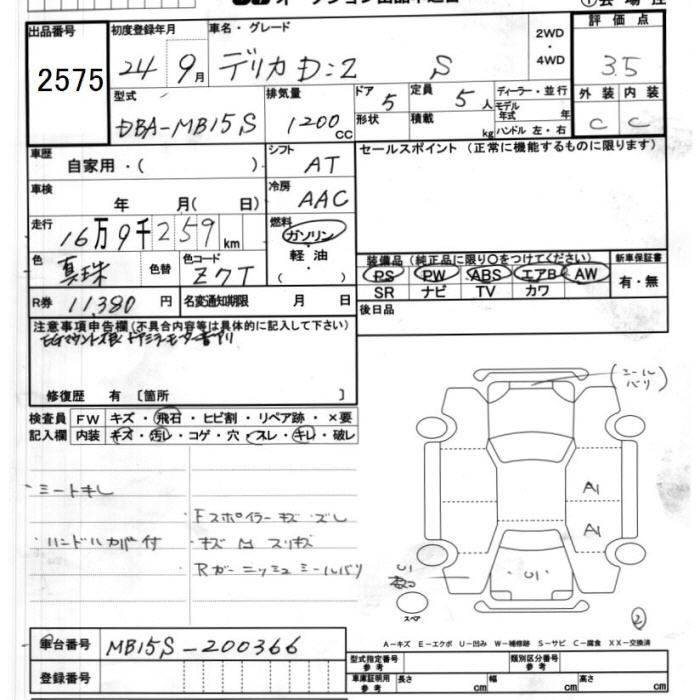 出品番号
2575
初度登録年月
24 9月
車名・グレード
デリカD:2 S
2WD
・
4WD
評価点
3.5
型式
DBA-MB15S
排気量
1200cc
ドア 5
形状
定員 5人
積載 kg
ディーラー・並行
モデル年式 年
ハンドル 左・右
外装 内装
C C
車歴
自家用・( )
シフト
AT
セールスポイント (正常に機能するものに限ります)
車検
年 月( 日)
冷房
AAC
走行
16万9千259km
燃料
ガソリン
・
軽油
( )
色
真珠
色替
色コード
Z7T
装備品 (純正品に限り○をつけてください)
PS PW ABS エアB AW
SR ナビ TV カワ
新車保証書
有・無
R券 11,380円
名変通知期限 月 日
後日品
注意事項申告欄 (不具合内容等は具体的に記入して下さい)
EGマウント不良 ドアミラーモーター音アリ
修復歴 有 [箇所 ]
検査員
記入欄
FW キズ・飛石・ヒビ割・リペア跡・×要
内装 キズ・汚レ・コゲ・穴・スレ・キレ・破レ
(シールバリ)
・シートキレ
Fスポイラー キズ ズレ
・ハンドルカバー付
・キズ
スリキズ
Rガーニッシュ シールバリ
A1
A1
U1
U1
スペア
2
車台番号 MB15S-200366
登録番号
A-キズ E-エクボ U-凹み W-補修跡 S-サビ C-腐食 XX-交換済
型式指定番号
参考
類別区分番号
参考
車庫証明用
参考
長さ cm
幅 cm
高さ cm